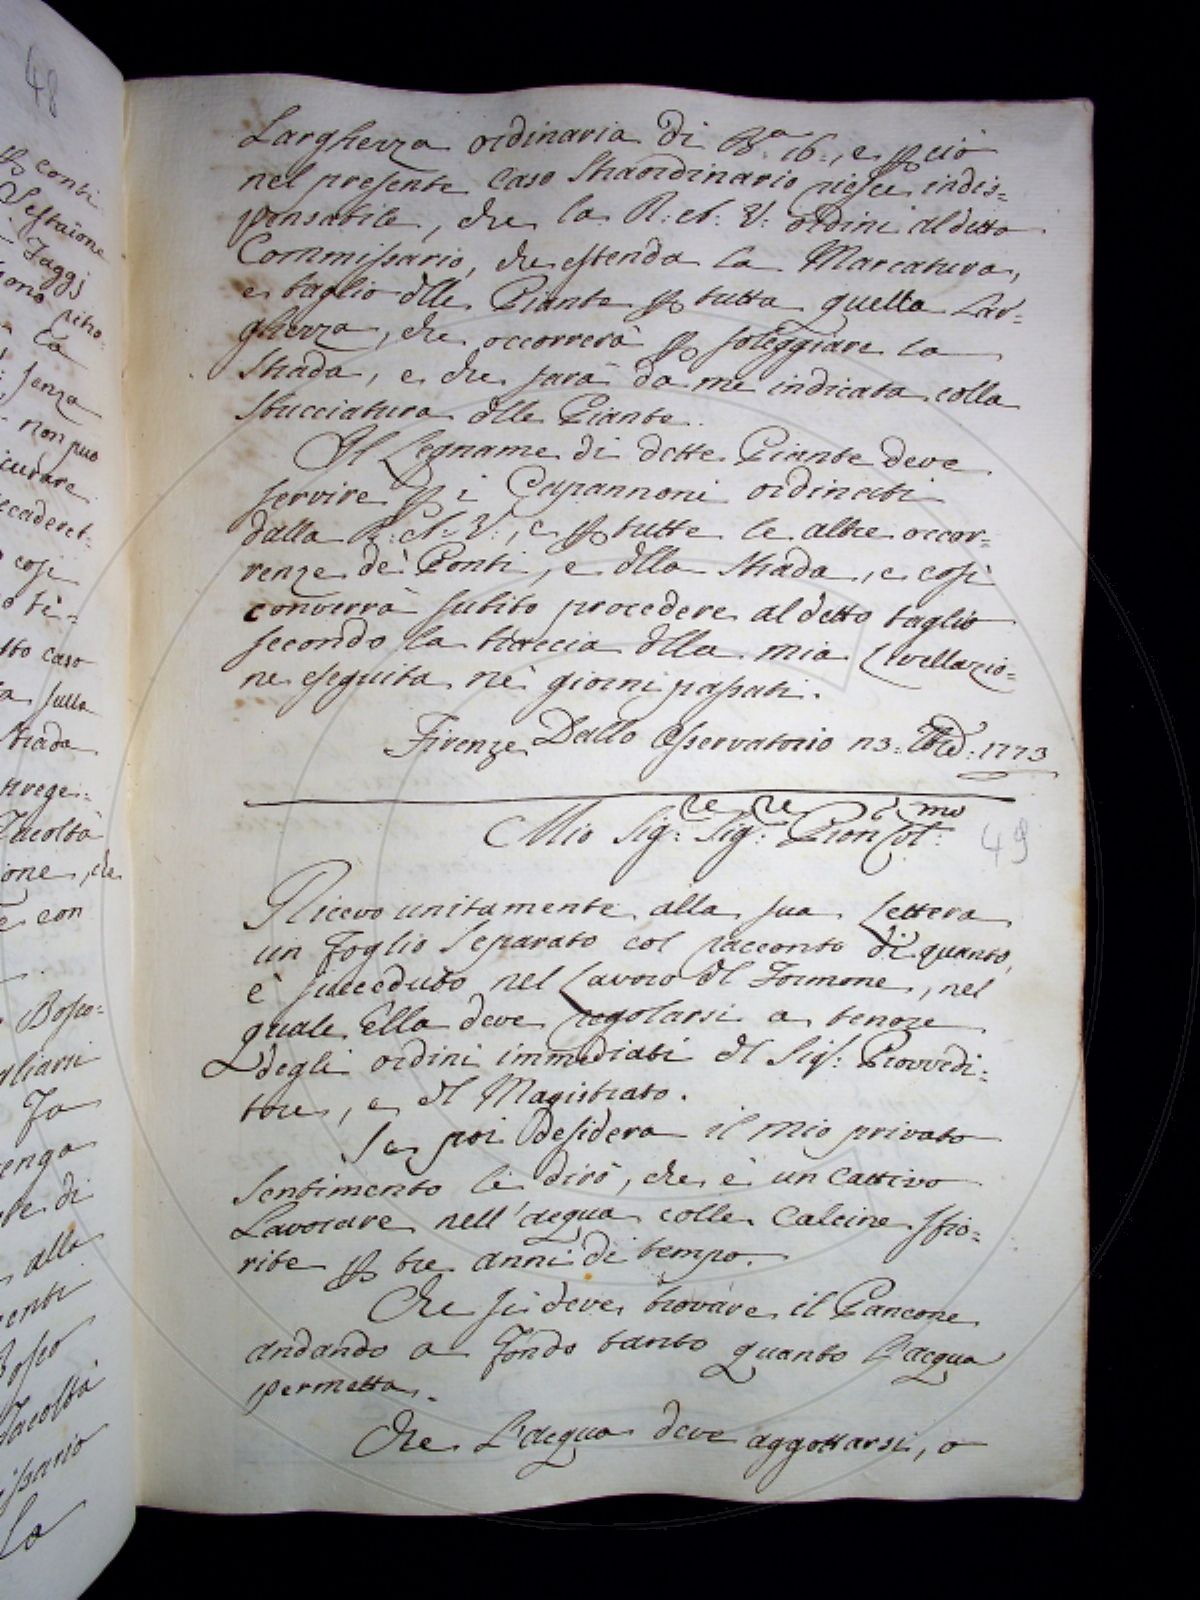 Larghezza ordinaria di B.a 16:, e p ciò
nel presente caso straordinario riesce indis=
pensabile, che la R: A: V: ordini al detto
Commissario, che estenda la Marcatura,
e taglio dlle Piante p tutta quella Lar=
ghezza, che occorrerà p soleggiare la
Strada, e che sarà da me indicata colla
Sbucciatura dlle Piante.
Il Legname di dette Piante deve
servire p i Capannoni ordinati
dalla R: A: V:, e p tutte le altre occor=
renze de' Ponti, e dlla Strada, e così
converrà subito procedere al detto taglio
secondo la traccia dlla mia Livellazio=
ne eseguita ne' giorni passati.
Firenze Dallo Osservatorio 1773
Mio Sig:re Sig:re Pron Col:mo
49
Ricevo unitamente alla sua Lettera
un foglio separato col racconto di quanto
è succeduto nel Lavoro dl Tormone, nel
quale Ella deve regolarsi a tenore
degli ordini immediati dl Sig: Provvedi=
tore, e dl Magistrato.
Se poi desidera il mio privato
sentimento le dirò, che è un cattivo
Lavorare nell'acqua colle Calcine sfio=
rite p tre anni di tempo.
Che si deve trovare il Pancone
andando a fondo tanto quanto l'acqua
permetta.
Che L'acqua deve aggottarsi, o
48
p conti
Sestaione
Faggi
sono
La
senza
non può
così
caso
sulla
Strada
Facoltà
che
con
Bosco=
di
alla
Bosco
Facoltà
La